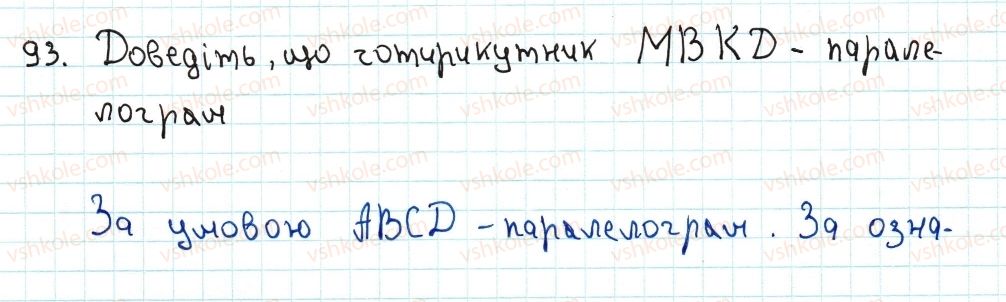 93. Доведіть, що чотирикутник MBKD - парале-
лограм
За умовою ABCD - паралелограм. За озна-